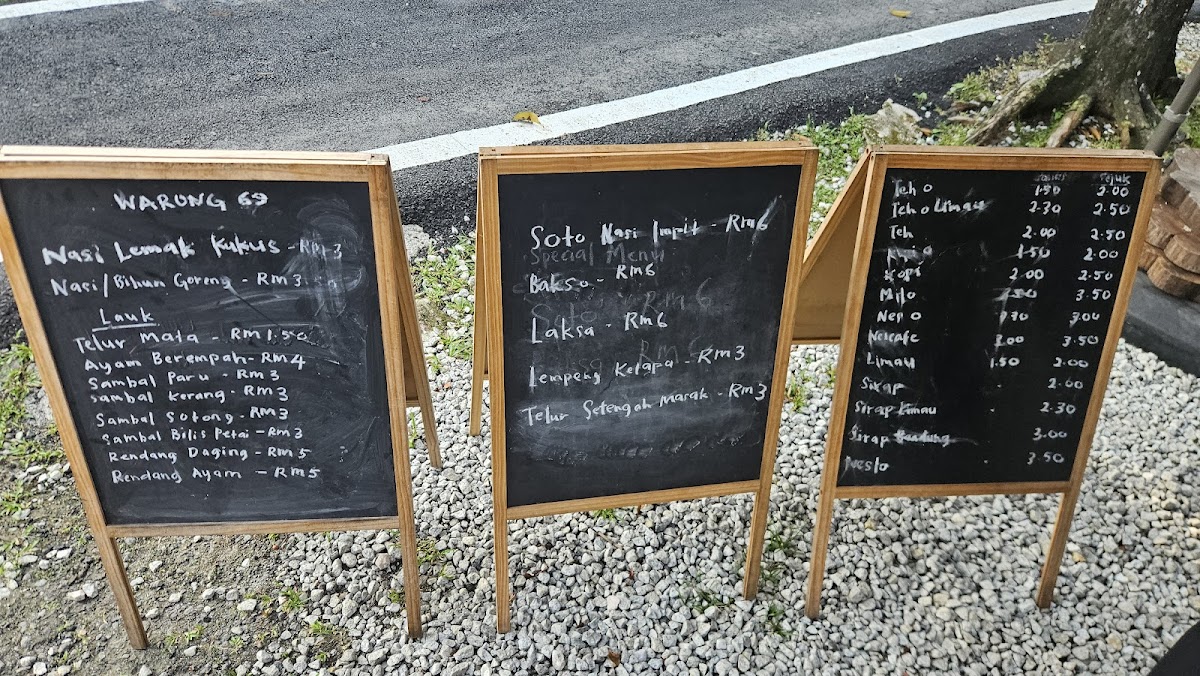 WARUNG 69
Nasi Lemak Kukus - RM 3
Nasi/Bihun Goreng - RM 3
Lauk
Telur Mata - RM 1.50
Ayam Berempah - RM 4
Sambal Paru - RM 3
Sambal Kerang - RM 3
Sambal Sotong - RM 3
Sambal Bilis Petai - RM 3
Rendang Daging - RM 5
Rendang Ayam - RM 5
Soto Nasi Impit - RM 6
Special Menu
Bakso - RM 6
Soto RM 6
Laksa - RM 6
RM 6
Lempeng Kelapa - RM 3
Telur Setengah Masak - RM 3
Panas Sejuk
Teh O 1.50 2.00
Teh O Limau 2.30 2.50
Teh 2.00 2.50
1.50 2.00
Kopi 2.00 2.50
Milo 3.50
Nes O 3.00
Nescafe 3.00 3.50
Limau 1.50 2.00
Sirap 2.00
Sirap Limau 2.30
Sirap Bandung 3.00
Neslo 3.50